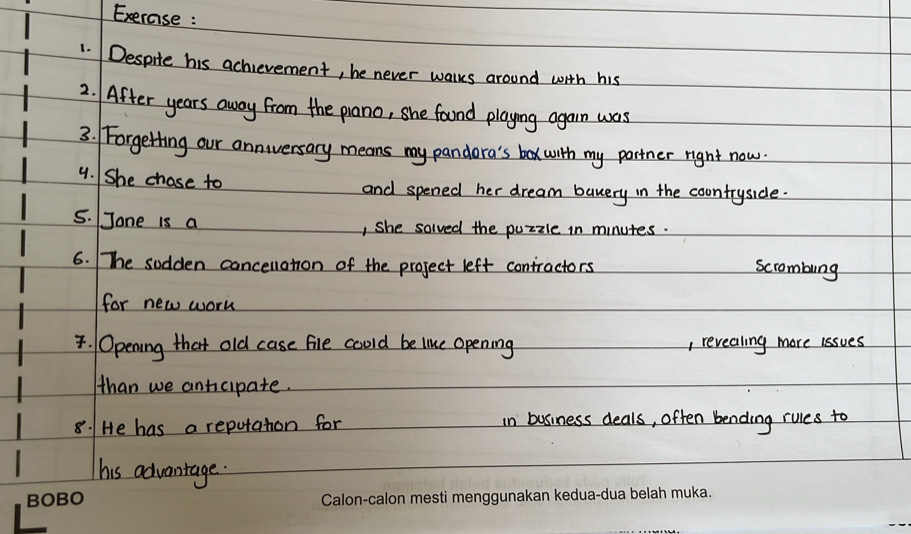 Exercise :
1. Despite his achievement, he never walks around with his
2. After years away from the piano, she found playing again was
3. Forgetting our anniversary means my pandora's box with my partner right now.
4. She chose to and spened her dream bakery in the countryside.
5. Jane is a , she solved the puzzle in minutes.
6. The sudden cancellation of the project left contractors scrambling
for new work
7. Opening that old case file could be like opening , revealing more issues
than we anticipate.
8. He has a reputation for in business deals, often bending rules to
his advantage.
BOBO Calon-calon mesti menggunakan kedua-dua belah muka.